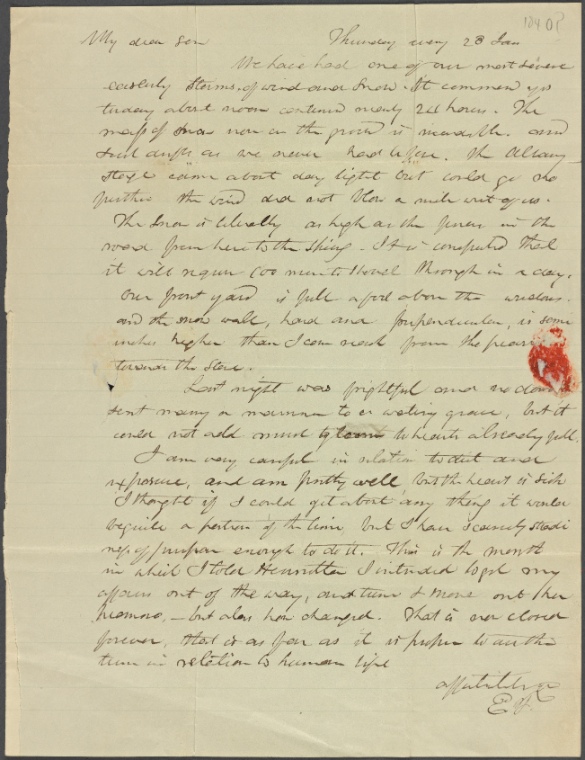 My dear Son Thursday evng 23 Jan
We have had one of our most severe
easterly storms of wind and snow. It commenced yes
terday about noon continued nearly 24 hours. The
mass of snow now on the ground is and
such drifts as we never had before. The Albany
stage came about day light but could go no
further the wind did not blow a mile out of us.
The snow is literally as high as the fences in the
road from here to the . It is computed that
it will require 100 men to shovel through in a day.
Our front yard is full a foot above the windows.
and the snow wall, hard and perpendicular, is some
inches higher than I can reach from the piazza
towards the Stone.
Last night was frightful and no doubt
sent many a mariner to a watery grave, but it
could not add much to hearts already full.
I am very careful in relation to diet and
exposure, and am pretty well but the heart is sick
I thought if I could get about any thing it would
beguile a portion of the time, but I have scarcely steadi
ness of purpose enough to do it. This is the month
in which I told Henrietta I intended to get my
affairs out of the way, and then I move out her
, – but alas how changed. That is now closed
forever, that is as far as it is proper to use the
term in relation to human life
affectionately